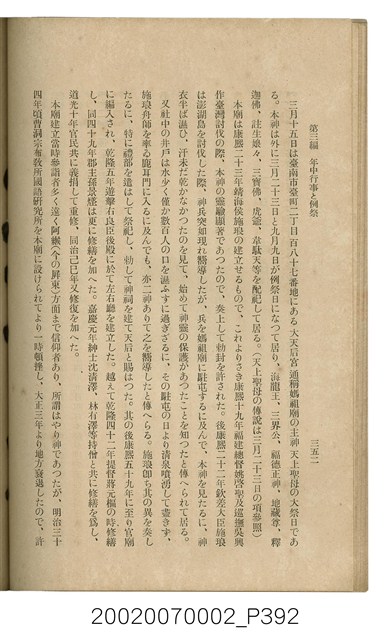 第三編　年中行事と例祭
三五二
三月十五日は臺南市臺町二丁目百八十七番地にある大天后宮通稱媽祖廟の主神天上聖母の大祭日であ
る。本神は外に三月二十三日と九月九日が例祭日になつて居り、海龍王、三界公、福德正神、地藏尊、釋
迦佛、註生娘々、三寶佛、虎爺、韋馱天等を配祀して居る。（天上聖母の傳說は三月二十三日の項參照）
本廟は康熙二十三年靖海侯施琅の建立せるもので、これよりさき康熙十九年福建總督姚啓聖及巡撫吳興
作臺灣討伐の際、本神の靈驗顯著であつたので、奏上して勅封を許された。後康熙二十二年欽差大臣施琅
は澎湖島を討伐した際、神兵突如現れ嚮導したが、兵を媽祖廟に駐屯するに及んで、本神を見たるに、神
衣半ば濕ひ、汗未だ乾かなかつたのを見て、始めて神靈の保護があつたことを知つたと傳へられて居る。
又社中の井戶は水少く僅か數百人の口を濕ふすに過ぎざるに、その駐屯の日より清泉噴湧して盡きず、
施琅舟師を率ゐ鹿耳門に入るに及んでも、亦二神ありて之を嚮導したと傳へらる。施琅卽ち其の異を奏し
たるに、特に禮部を遣はして祭祀し、勅して神祠を建て天后と賜はつた。其の後康熙五十九年に至り官廟
に編入され、乾隆五年遊擊右良臣後殿に於て左右廳を建立した。越えて乾隆四十二年提督蔣元樞の時修繕
し、同四十九年郡主孫景燧は更に修繕を加へた。嘉慶元年紳士沈清澤、林有澤等持僧と共に修繕を爲し、
道光十年官民共に義捐して重修、同治己巳年又修復を加へた。
本廟建立當時參詣者多く遠く阿緱（今の屏東）方面まで信仰者あり、所謂はやり神であつたが、明治三十
四年頃曹洞宗布教所國語研究所を本廟に設けられてより一時頓挫し、大正三年より地方衰退したので、許
20020070002_P392